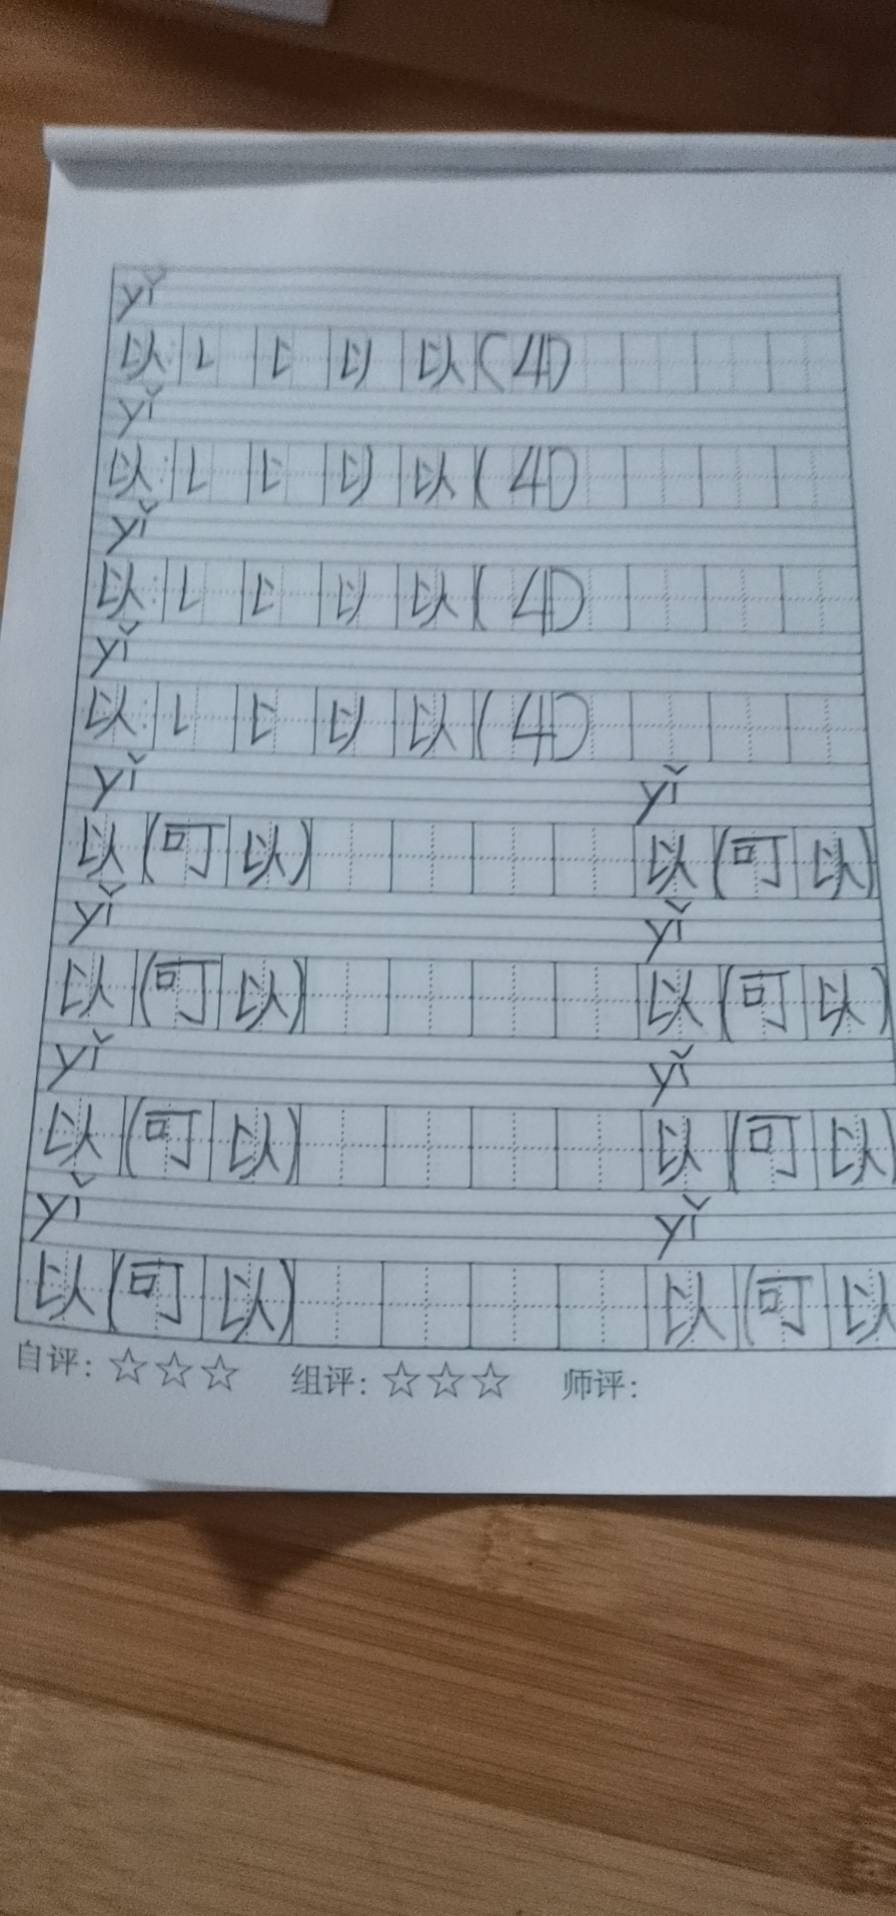 yǐ
以: 𠄌 レ 以 (4)
yǐ
以: (4)
yǐ
以: 以 (4)
yǐ
以: 以 (4)
yǐ yǐ
以(可以) 以(可以)
yǐ yǐ
以(可以) 以(可以)
yǐ yǐ
以(可以) 以(可以)
yǐ yǐ
以(可以) 以(可以
自评:☆☆☆ 组评:☆☆☆ 师评: